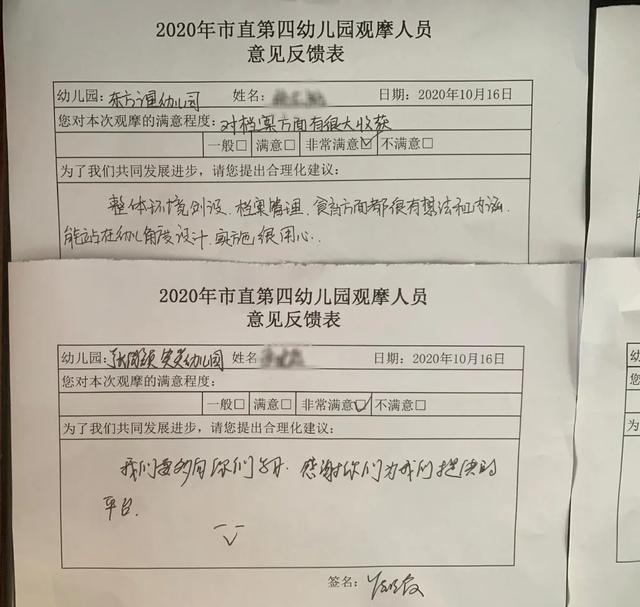 2020年市直第四幼儿园观摩人员
意见反馈表
幼儿园：东方之星幼儿园 姓名： 日期：2020年10月16日
您对本次观摩的满意程度：对档案方面有很大收获
一般□ 满意□ 非常满意☑ 不满意□
为了我们共同发展进步，请您提出合理化建议：
整体环境创设、档案管理、食育方面都很有想法和内涵，
能站在幼儿角度设计、实施很用心.
2020年市直第四幼儿园观摩人员
意见反馈表
幼儿园：幼儿园 姓名 日期：2020年10月16日
您对本次观摩的满意程度：
一般□ 满意□ 非常满意☑ 不满意□
为了我们共同发展进步，请您提出合理化建议：
我们要多向你们学习. 感谢你们为我们提供的
平台.
签名：
幼
您
为